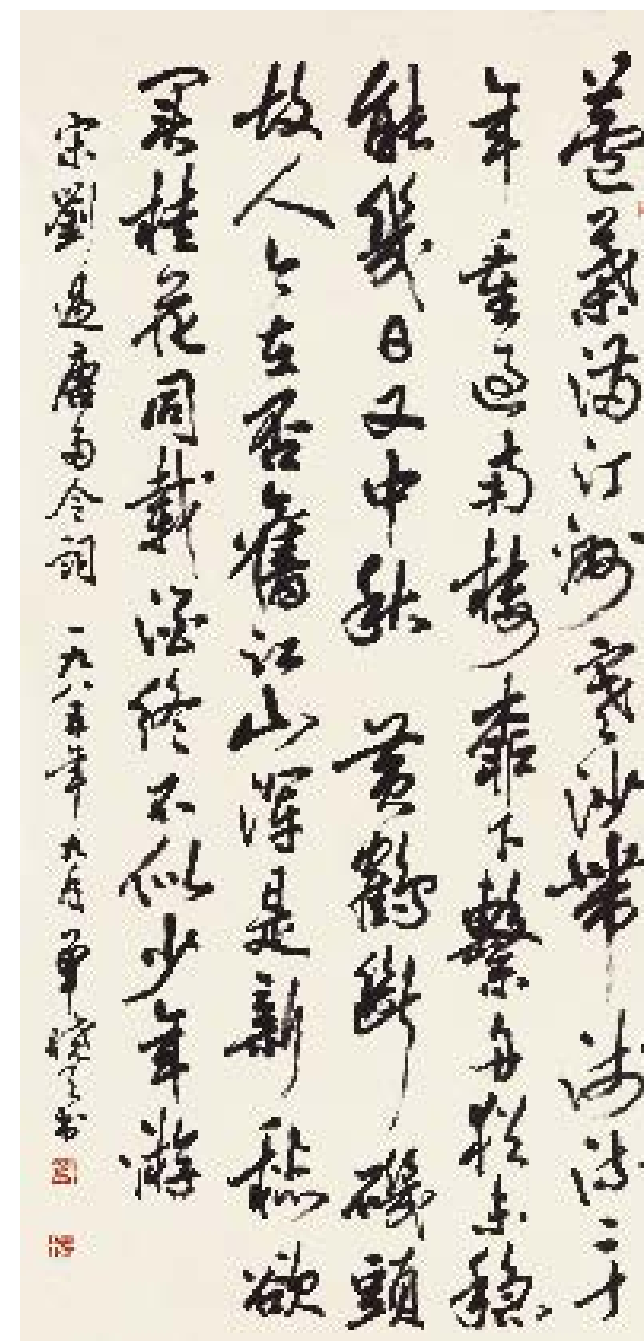 蘆葉滿汀洲寒沙帶淺流二十
年重過南樓柳下繫舟猶未穩
能幾日又中秋 黃鶴斷磯頭
故人今在否舊江山渾是新愁欲
買桂花同載酒終不似少年游
宋劉過唐多令詞 一九八五年九月單曉天書